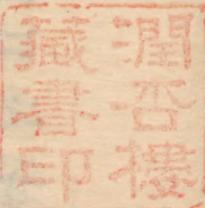 潤吾樓
藏書印